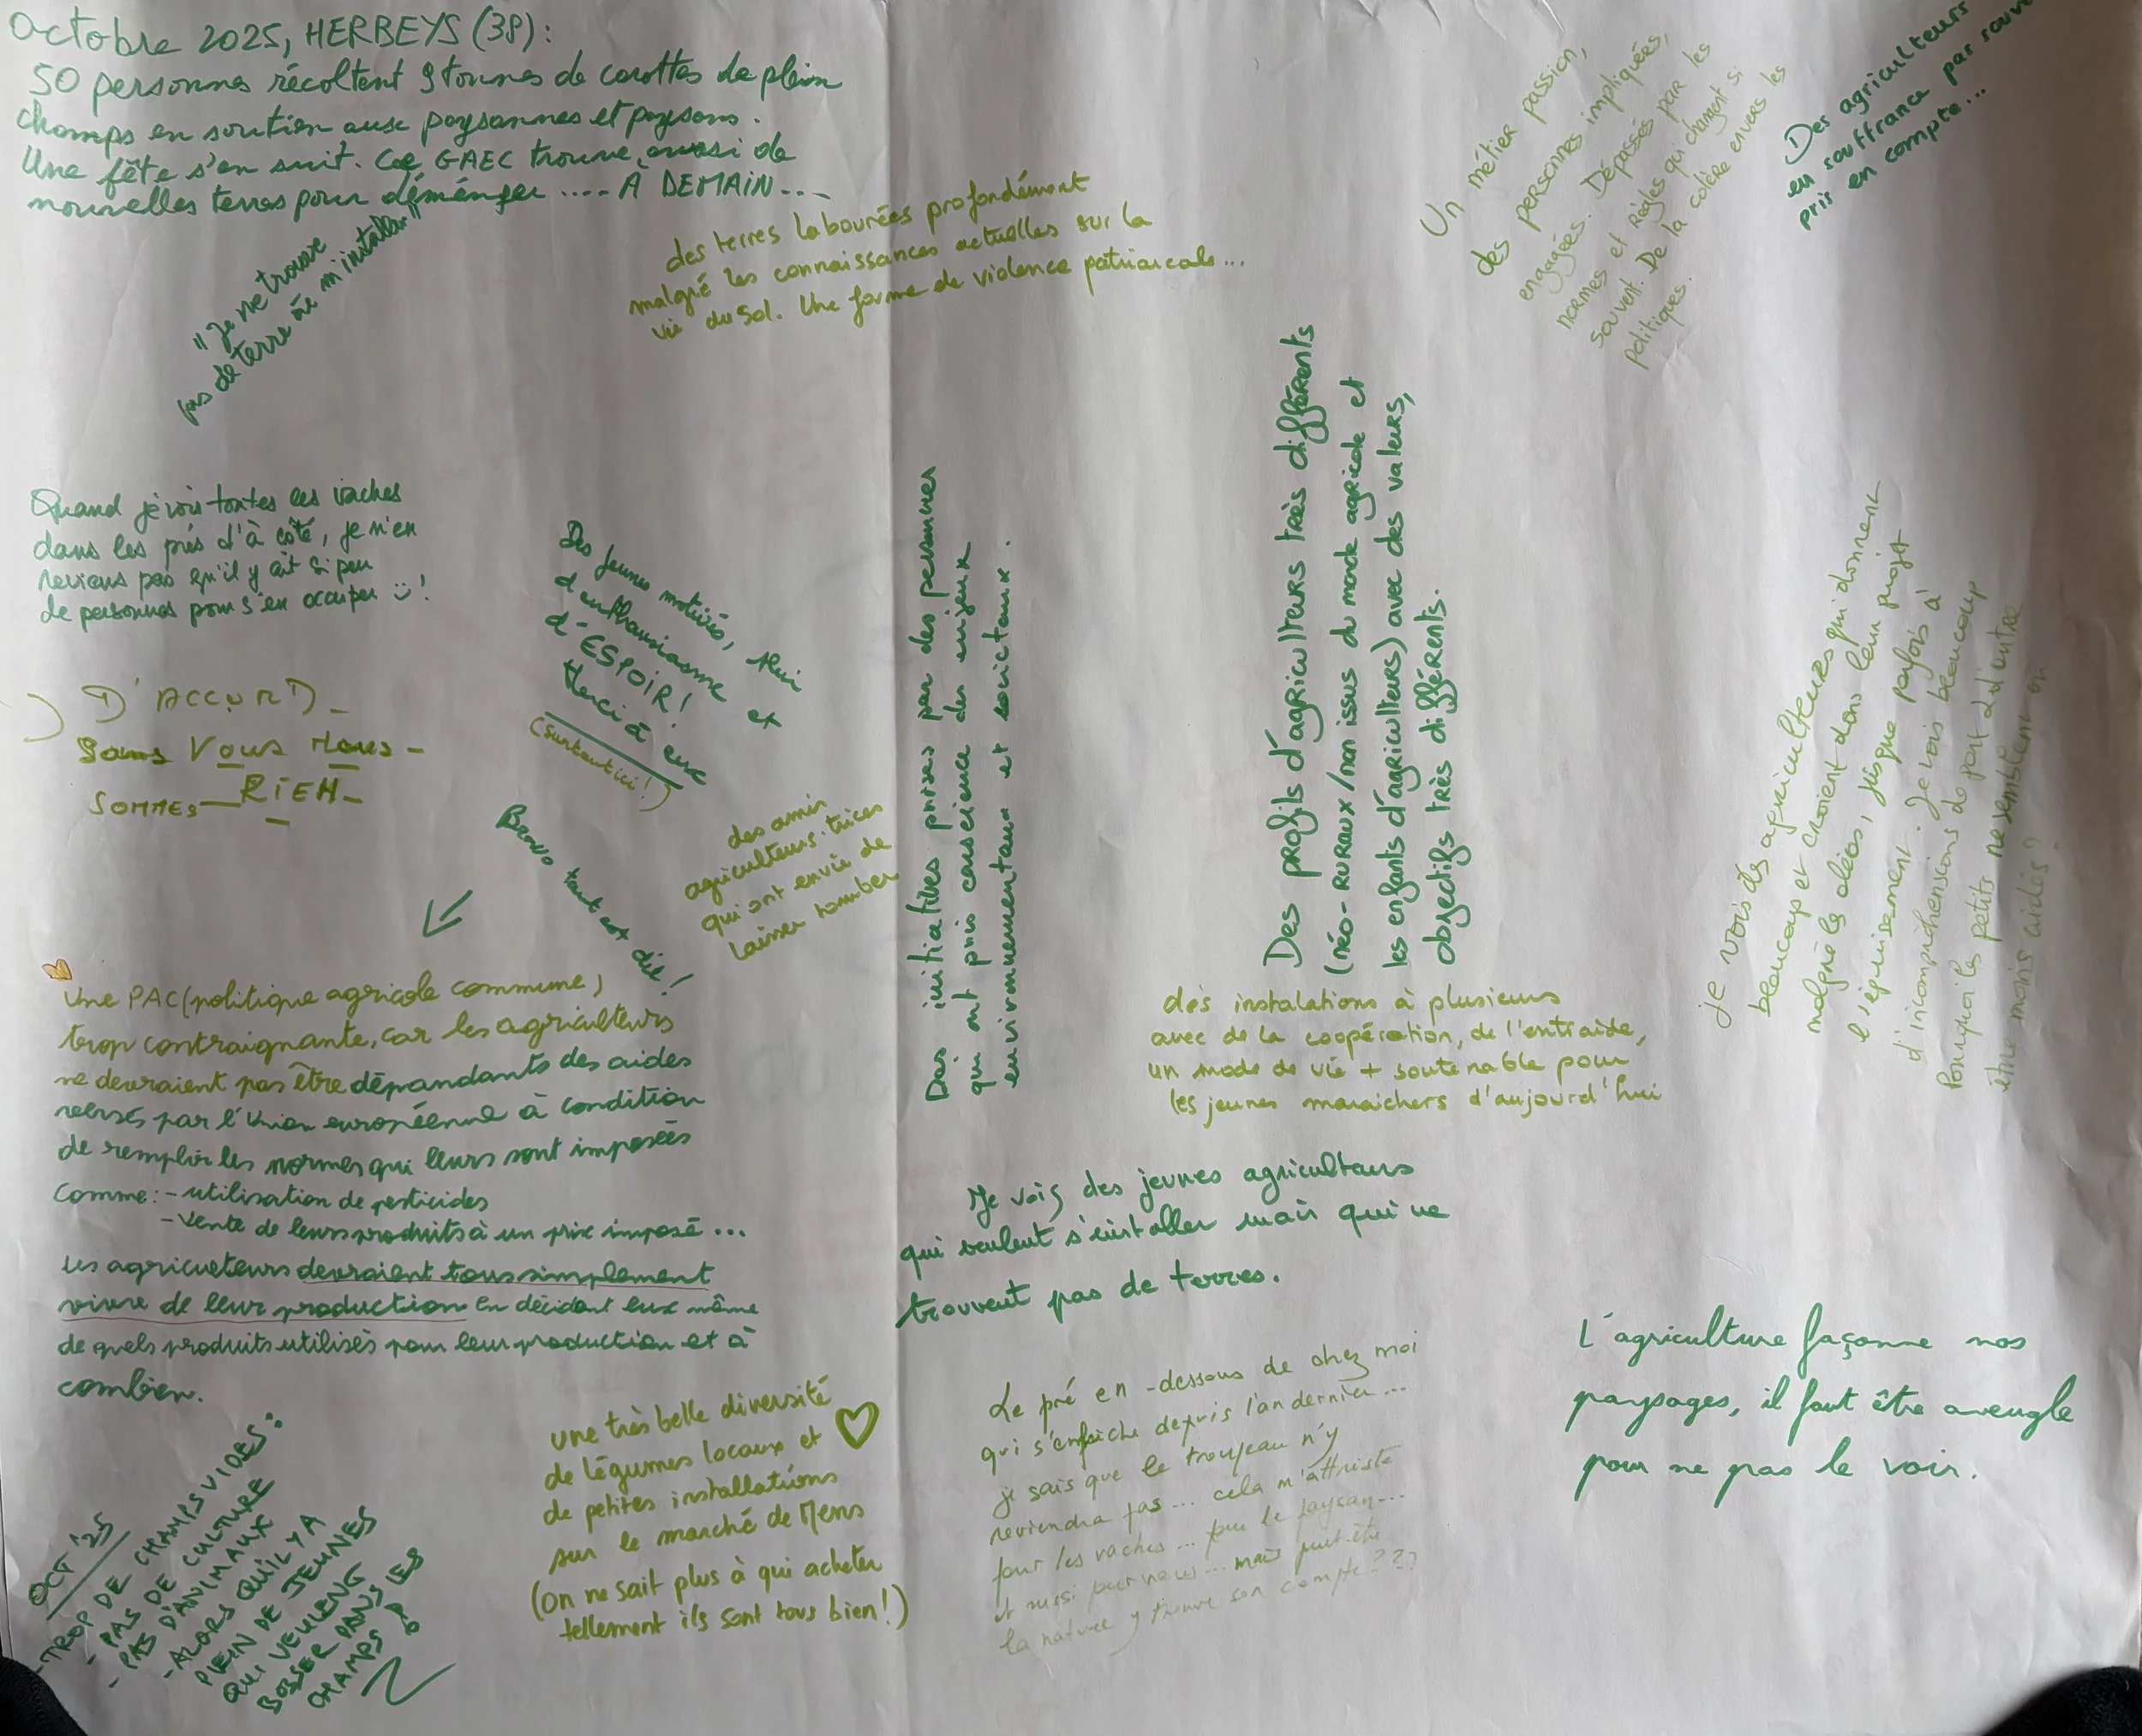 Octobre 2025, HERBEYS (38):
50 personnes récoltent 9 tonnes de carottes de plein
champs en soutien aux paysannes et paysans.
Une fête s'en suit. Ce GAEC trouve aussi de
nouvelles terres pour déménager .... À DEMAIN...
"Je ne trouve
pas de terre où m'installer"
des terres labourées profondément
malgré les connaissances actuelles sur la
vie du sol. Une forme de violence patriarcale...
Un métier passion,
des personnes impliquées,
engagées. Dépassés par les
normes et Règles qui changent si
souvent. De la colère envers les
politiques.
Des agriculteurs
en souffrance pas
pris en compte...
Quand je vois toutes les vaches
dans les prés d'à côté, je n'en
reviens pas qu'il y ait si peu
de personnes pour s'en occuper !
D'ACCORD_
Sans Vous Nous -
SOMMES RIEN_
Des jeunes motivés, plein
d'enthousiasme et
d'ESPOIR!
Merci à eux
(surtout ici!)
Bravo tout est dit!
des amis
agriculteurs.trices
qui ont envie de
laisser tomber
Des initiatives prises par des personnes
qui ont pris conscience des enjeux
environnementaux et sociétaux.
Des profils d'agriculteurs très différents
(néo-ruraux/non issus du monde agricole et
les enfants d'agriculteurs) avec des valeurs,
objectifs très différents.
Je vois des agriculteurs qui donnent
beaucoup et croient dans leur projet
malgré les aléas, jusque parfois à
l'épuisement. Je vois beaucoup
d'incompréhensions de part et d'autre
Pourquoi les petits ne semblent-ils
être moins aidés?
Une PAC (politique agricole commune)
trop contraignante, car les agriculteurs
ne devraient pas être dépendants des aides
par l'Union européenne à condition
de remplir les normes qui leurs sont imposées
Comme: - utilisation de pesticides
- Vente de leurs produits à un prix imposé ...
Les agriculteurs devraient tous simplement
vivre de leur production en décidant eux même
de quels produits utilisés pour leur production et à
combien.
des instalations à plusieurs
avec de la coopération, de l'entraide,
un mode de vie + soutenable pour
les jeunes maraichers d'aujourd'hui
Je vois des jeunes agriculteurs
qui veulent s'installer mais qui ne
trouvent pas de terres.
L'agriculture façonne nos
paysages, il faut être aveugle
pour ne pas le voir.
OCT '25
- TROP DE CHAMPS VIDES:
- PAS DE CULTURE
- PAS D'ANIMAUX
- ALORS QU'IL Y A
PLEIN DE JEUNES
QUI VEULENT
BOSSER DANS LES
CHAMPS!
une très belle diversité
de légumes locaux et
de petites installations
sur le marché de Mens
(On ne sait plus à qui acheter
tellement ils sont tous bien!)
Le pré en-dessous de chez moi
qui s'enfriche depuis l'an dernier...
je sais que le troupeau n'y
reviendra pas... cela m'attriste
pour les vaches... pour le paysan...
et aussi pour nous... mais peut-être
la nature y trouve son compte???